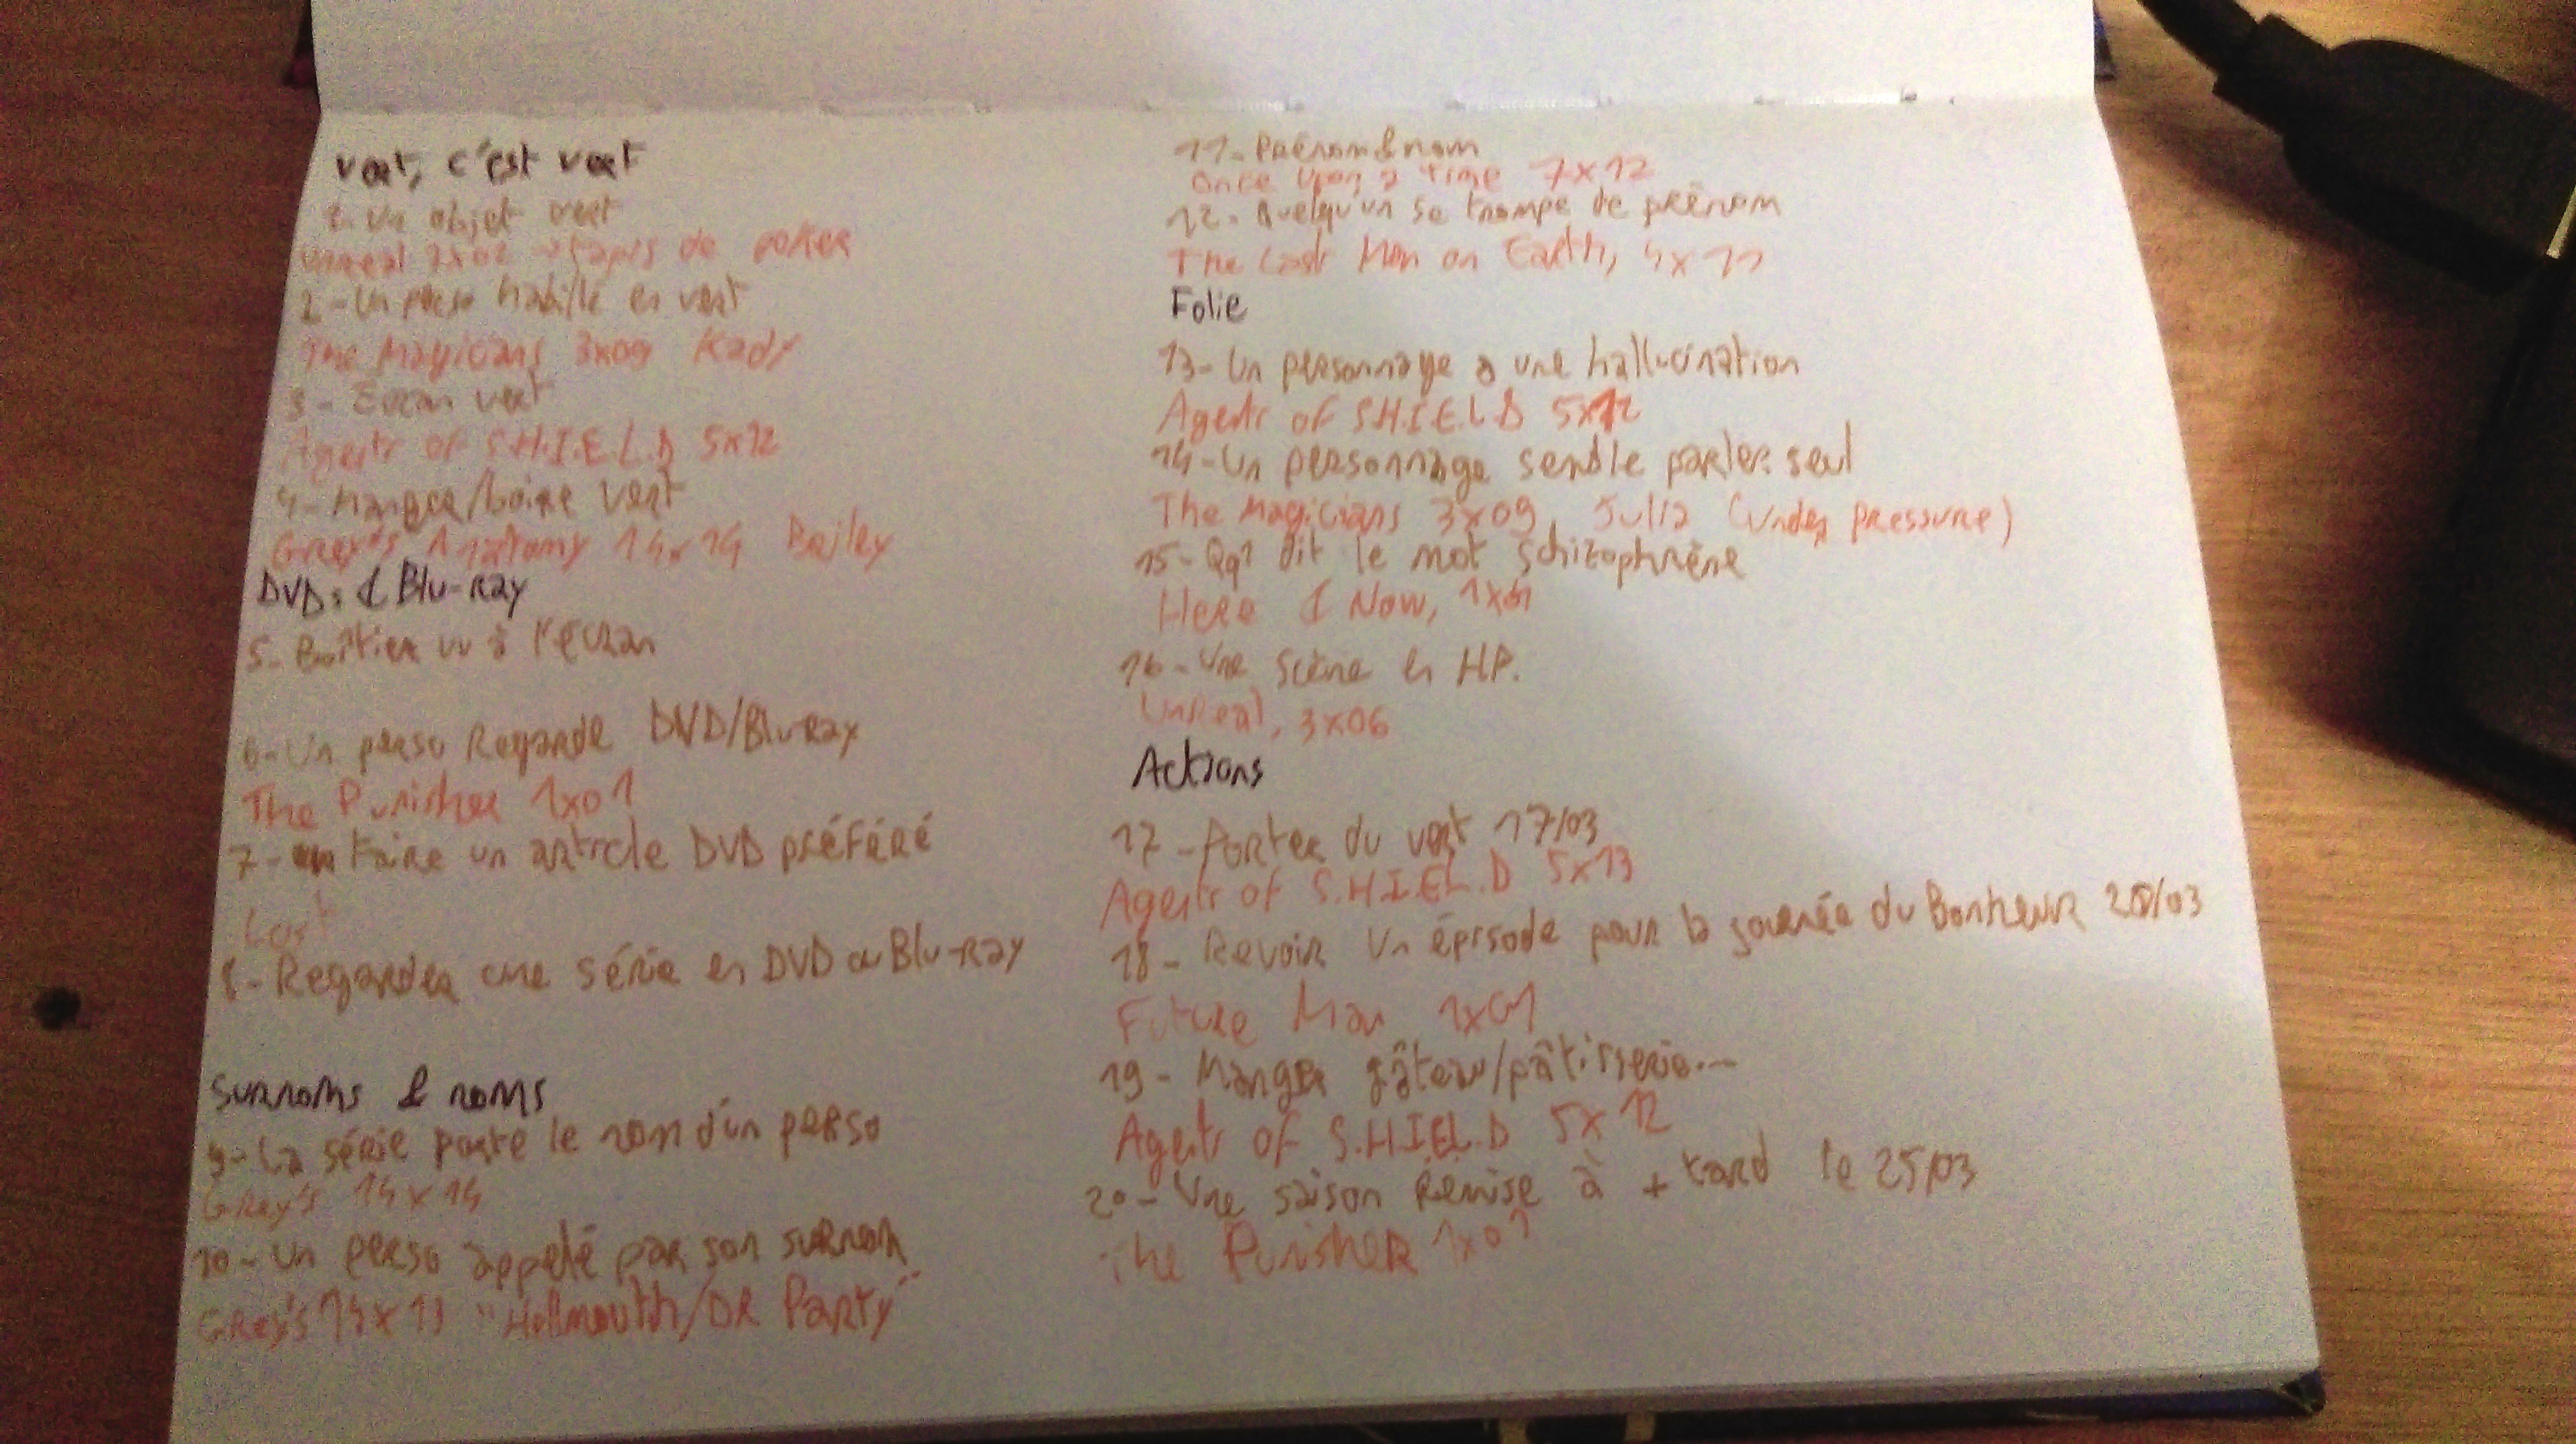 vert, c'est vert
1. Un objet vert
Unreal 3x02 → tapis de poker
2 - Un perso habillé en vert
The Magicians 3x09 Kady
3 - Ecran vert
Agents of S.H.I.E.L.D 5x12
4 - Manger/boire vert
Grey's Anatomy 14x14 Bailey
DVDs & Blu-Ray
5- Boîtier vu à l'écran
6- Un perso Regarde DVD/Blu-Ray
The Punisher 1x01
7- Faire un article DVD préféré
Lost
8- Regarder une série en DVD ou Blu-Ray
Surnoms & noms
9- La série porte le nom d'un perso
Grey's 14x14
10- Un perso appelé par son surnom
Grey's 14x13 "Hellmouth/DR Party"
11- Prénom & nom
Once Upon a Time 7x12
12- Quelqu'un se trompe de prénom
The Last Man on Earth, 4x11
Folie
13- Un personnage a une hallucination
Agents of S.H.I.E.L.D 5x12
14- Un personnage semble parler seul
The Magicians 3x09, Julia (Under pressure)
15- Qq1 dit le mot schizophrène
Here & Now, 1x01
16- Une scène en HP.
UnReal, 3x06
Actions
17- Porter du vert 17/03
Agents of S.H.I.E.L.D 5x13
18- Revoir un épisode pour la journée du Bonheur 20/03
Future Man 1x01
19- Manger gâteau/pâtisserie...
Agents of S.H.I.E.L.D 5x12
20- Une saison Remise à + tard le 25/03
The Punisher 1x01